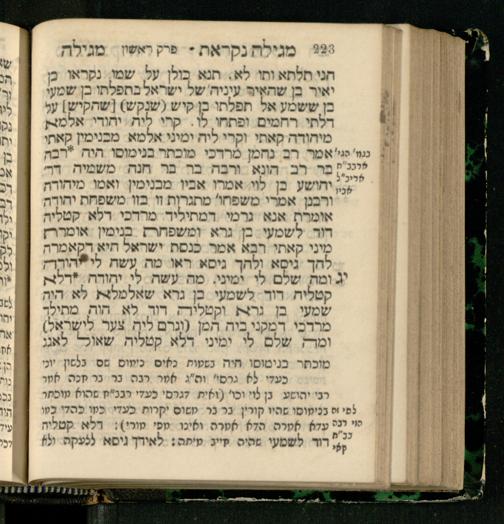 223 מגילה נקראת • פרק ראשון מגילה
הני תלתא ותו לא. תנא כולן על שמו נקראו בן
יאיר בן שהאיר עיניה' של ישראל בתפלתו בן שמעי
בן ששמע אל תפלתו בן קיש (שנקש) [שהקיש] על
דלתי רחמים ופתחו לו. קרי ליה יהודי אלמא
מיהודה קאתי וקרי ליה ימיני אלמא מבנימין קאתי
אמר רב נחמן מרדכי מוכתר בנימוסו היה *רבה
בר רב הונא ורבה בר בר חנה משמיה דר'
יהושע בן לוי אמרו אביו מבנימין ואמו מיהודה
ורבנן אמרי משפחו' מתגרות זו בזו משפחת יהודה
אומרת אנא גרמי דמתיליד מרדכי דלא קטליה
דוד לשמעי בן גרא ומשפחת בנימין אומרת
מיני קאתי רבא אמר כנסת ישראל היא דקאמרה
להך גיסא ולהך גיסא ראו מה עשה לי יהודה
יג ומה שלם לי ימיני. מה עשה לי יהודה *דלא
קטליה דוד לשמעי בן גרא שאלמלא לא היה
שמעי בן גרא וקטליה דוד לא הוה מתיליד
מרדכי דמקני ביה המן (וגרם ליה צער לישראל)
ומה שלם לי ימיני דלא קטליה שאול לאגג
מוכתר בנימוסו היה בשמות נאים
רבי יהושע בן לוי וכו'
דוד לשמעי שהיה חייב מיתה: לאידך גיסא ללעקה ולא